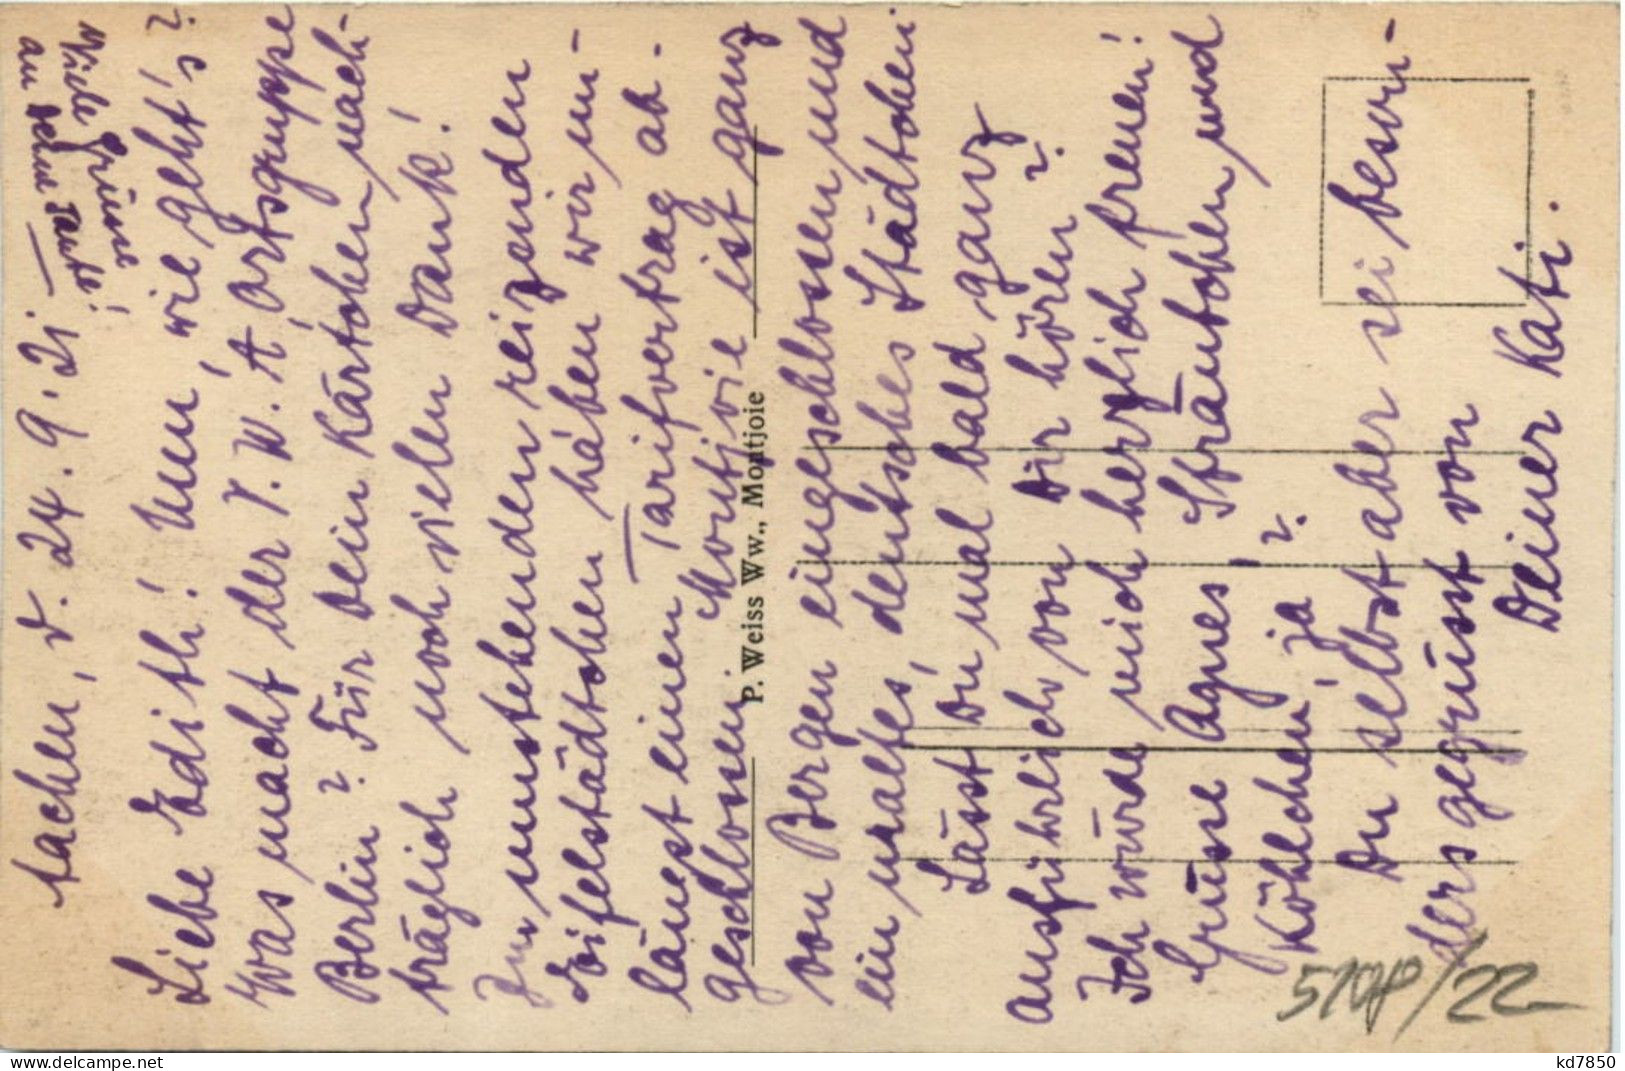 Aachen, d. 24.9.21 —
Viele Grüsse
an Deine Tante!
Liebe Edith! Nun, wie geht's?
Was macht der V. W. A. Ortsgruppe
Berlin? Für Dein Kärtchen nach-
träglich noch vielen Dank!
Im umstehenden reizenden
Eifelstädtchen haben wir un-
längst einen Tarifvertrag ab-
geschlossen. Montjoie ist ganz
von Bergen eingeschlossen und
ein uraltes, deutsches Städtchen
Lässt Du mal bald ganz
ausführlich von Dir hören?
Ich würde mich herzlich freuen!
Grüsse Agnes Sträutchen und
Köhlchen, ja?
Du selbst aber sei beson-
ders gegrüsst von
Deiner Kati.
P. Weiss Ww., Montjoie
/22
kd7850